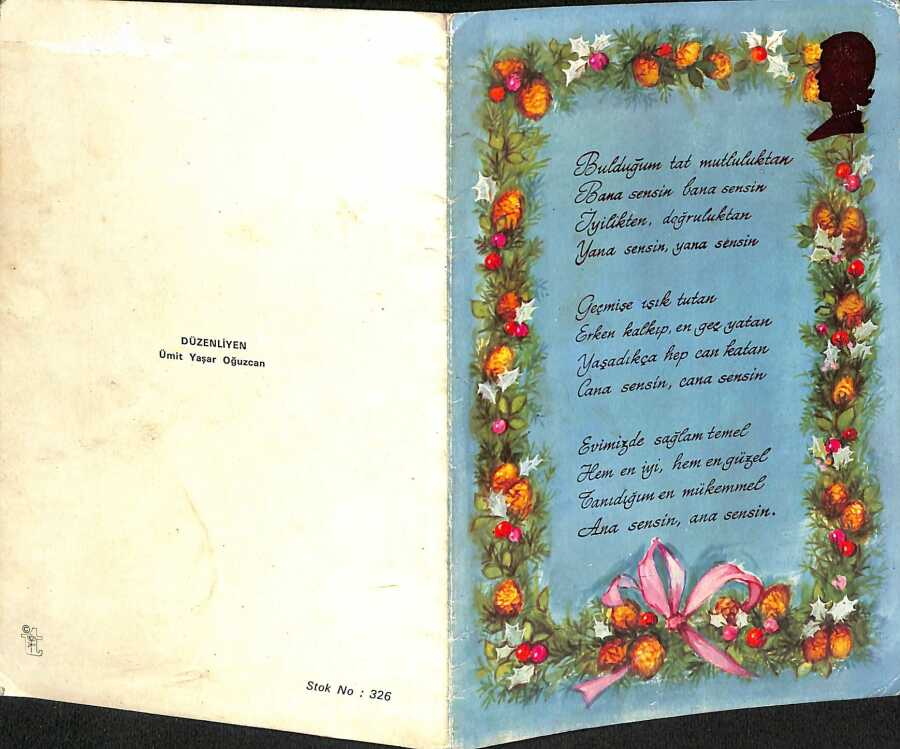 DÜZENLİYEN
Ümit Yaşar Oğuzcan
Stok No : 326
Bulduğum tat mutluluktan
Bana sensin bana sensin
İyilikten, doğruluktan
Yana sensin, yana sensin
Geçmişe ışık tutan
Erken kalkıp, en geç yatan
Yaşadıkça hep can katan
Cana sensin, cana sensin
Evimizde sağlam temel
Hem en iyi, hem en güzel
Tanıdığım en mükemmel
Ana sensin, ana sensin.